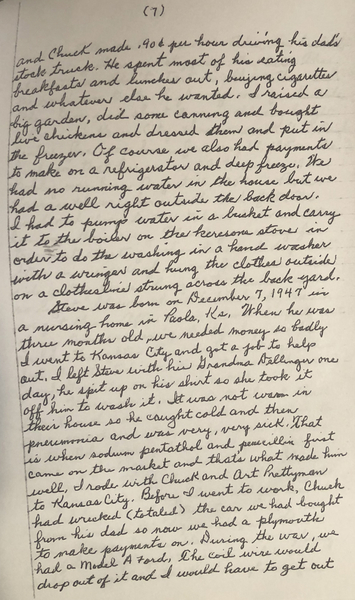 (7)
and Chuck made .90¢ per hour driving his dad's
stock truck. He spent most of his eating
breakfasts and lunches out, buying cigarettes
and whatever else he wanted. I raised a
big garden, did some canning and bought
live chickens and dressed them and put in
the freezer. Of course we also had payments
to make on a refrigerator and deep freeze. We
had no running water in the house but we
had a well right outside the back door.
I had to pump water in a bucket and carry
it to the boiler on the kerosene stove in
order to do the washing in a hand washer
with a wringer and hung the clothes outside
on a clothesline strung across the back yard.
Steve was born on December 7, 1947 in
a nursing home in Paola, Ks. When he was
three months old, we needed money so badly
I went to Kansas City and got a job to help
out. I left Steve with his Grandma Dillinger one
day, he spit up on his shirt so she took it
off him to wash it. It was not warm in
their house so he caught cold and then
pneumonia and was very, very sick. That
is when sodium pentathol and penicillin first
came on the market and thats what made him
well. I rode with Chuck and Art Prettyman
to Kansas City. Before I went to work, Chuck
had wrecked (totaled) the car we had bought
from his dad so now we had a plymouth
to make payments on. During the war, we
had a Model A Ford. The coil wire would
drop out of it and I would have to get out